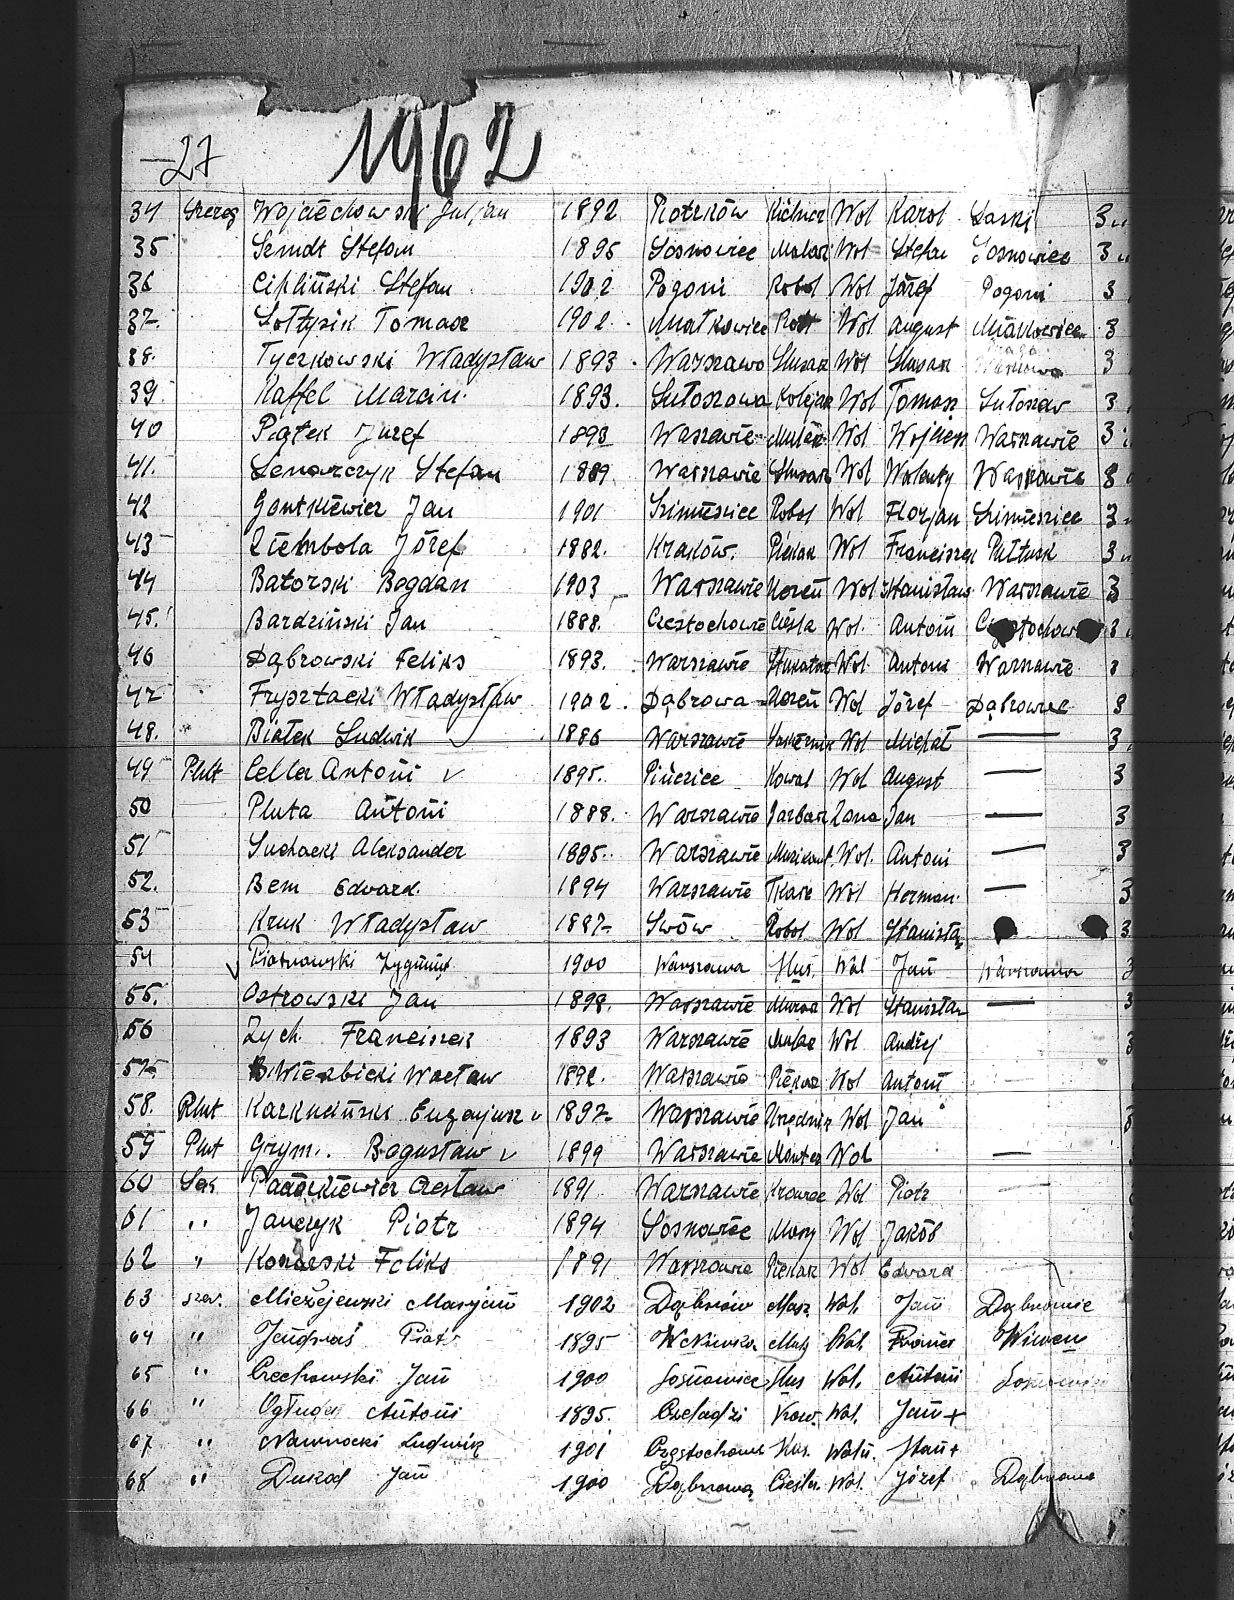 -27 1962
34 Szereg Wojciechowski Juljan 1892 Piotrków Wol Karol Łaski 3
35 Serndt Stefan 1895 Sosnowiec Malarz Wol Stefan Sosnowiec 3
36 Cipliński Stefan 1902 Pogoni Robot Wol Józef Pogoni 3
37. Sołtysik Tomasz 1902. Wol August 3
38. Tyczkowski Władysław 1893. Warszawa Slusarz Wol Slusarz 3
39. Kaffel Marcin. 1893. Sułoszowa Kolejarz Wol Tomasz Sułoszow 3
40 Piątek Juzef 1893 Warszawie Wol Wojciech Warszawie 3
41. Lenarczyk Stefan 1889. Warszawie Slusarz Wol Walenty Warszawie 3
42 Gontkiewicz Jan 1901 Robot Wol Florjan 3
43 Ziembola Józef 1882. Kraków. Piekarz Wol Franciszek Pułtusk 3
44 Batorski Bogdan 1903 Warszawie Wol Stanisław Warszawie 3
45. Bardziński Jan 1888. Częstochowie Cieśla Wol. Antoni 3
46 Dąbrowski Feliks 1893. Warszawie Wol. Antoni Warszawie 3
47 Frysztacki Władysław 1902. Dąbrowa Wol Józef Dąbrowie 3
48. Białek Ludwik 1886 Warszawie Wol Michał — 3
49 Plut Celler Antoni v 1895. Kowal Wol August — 3
50 Pluta Antoni 1888. Warszawie Jan — 3
51 Suchocki Aleksander 1885. Warszawie Muzikant Wol. Antoni — 3
52. Bem Edward. 1894 Warszawie Tkacz Wol Herman. — 3
53 Kruk Władysław 1887 Lwów Robot Wol Stanisła 3
54 Piotrowski Zygmunt 1900 Warszawa Slus. Wol Jan Warszawa 3
55. Ostrowski Jan 1898. Warszawie Murarz Wol Stanisław — 3
56 Zych. Franciszek 1893 Warszawie Wol Andżej 3
57. Wierzbicki Wacław 1892. Warszawie Piekarz Wol Antoni —
58. Plut Eugenjusz v 1897 Warszawie Urzędnik Wol Jan
59 Plut Grym.. Bogusław v 1899 Warszawie Monter Wol —
60 Sek Czesław 1891 Warszawie Krawiec Wol Piotr —
61 " Janczyk Piotr 1894 Sosnowiec Wol Jakób
62 " Konarski Feliks 1891 Warszawie Piekarz Wol Edward
63 szer. Mieżejewski Marjan 1902 Dąbrów Masz Wol. Jan Dąbrowie
64 " Piotr 1895 Wol.
65 " Czechowski Jan 1900 Sosnowiec Slus Wol. Antoni Sosnowiec
66 " Antoni 1895. Czeladzi Wol. Jan +
67 " Nawrocki Ludwik 1901 Stan +
68 " Jan 1900 Dąbrowa Wol. Józef Dąbrowa